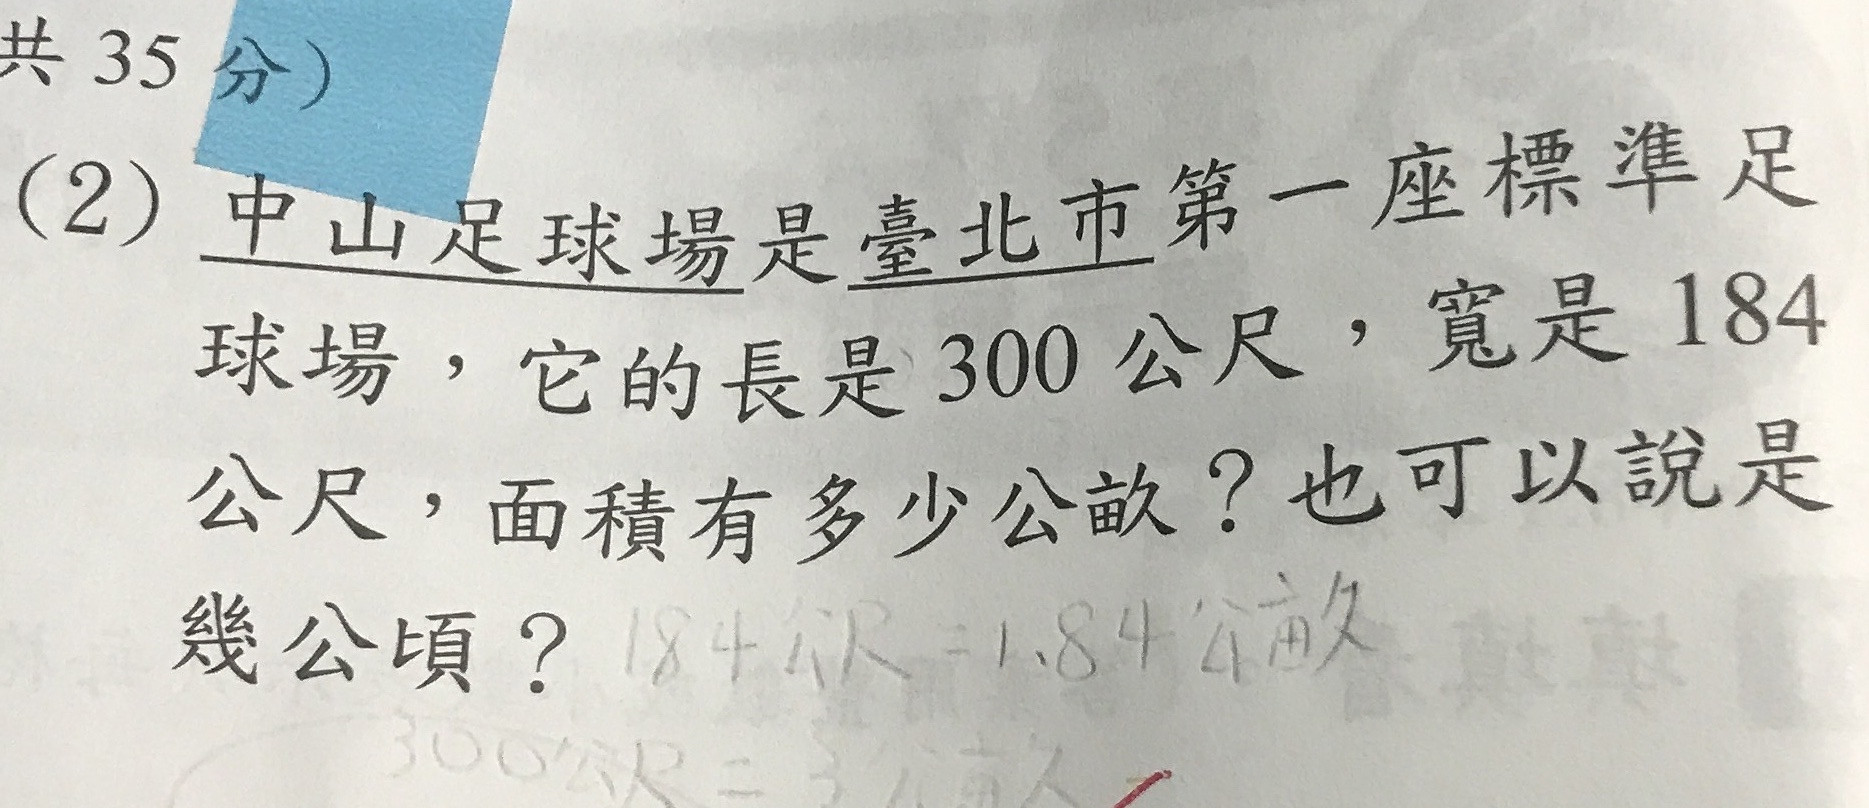 共35分)
(2)中山足球場是臺北市第一座標準足
球場，它的長是300公尺，寬是184
公尺，面積有多少公畝？也可以說是
幾公頃？184公尺=1.84公畝
300公尺=3公畝